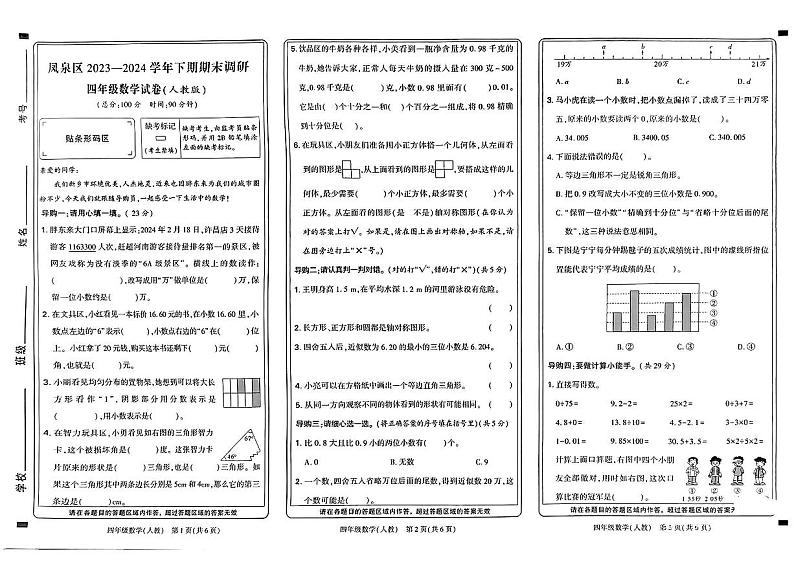 凤泉区 2023—2024 学年下期期末调研
四年级数学试卷(人教版)
(总分:100 分 时间:90 分钟)
考号
姓名
班级
学校
贴条形码区
缺考标记
(考生禁填)
缺考考生,由监考员贴条
形码,并用 2B 铅笔填涂
左面的缺考标记。
亲爱的同学:
我们新乡市环境优美,人杰地灵,近来也因胖东来为我们的城市圈
粉不少,今天我们就跟随导购员,一起感受一下生活中的数学!
导购一:请用心填一填。( 23 分)
1. 胖东来大门口屏幕上显示:2024 年 2 月 18 日,许昌店 3 天接待
游客 1163300 人次,赶超河南游客接待量排名第一的景区,被
网友戏称为没有淡季的“6A 级景区”。横线上的数读作:
( ),改写成用“万”做单位是( )万,保
留一位小数约是( )万。
2. 在文具区,小红看见一本标价 16.60 元的书,在小数 16.60 里,小
数点左边的“6”表示( ),小数点右边的“6”在( )位
上。小红拿了 20 元钱,购买这本书还剩下( )元( )
角,也就是( )元。
3. 小丽看见均匀分布的置物架,她想到可以将大长
方形看作“1”,阴影部分用分数表示是
( ),用小数表示是( )。
4. 在智力玩具区,小勇看见如右图的三角形智力
卡,这个被损坏角是( )度。这张智力卡
片原来的形状是( )三角形,也是( )三角形。如
果这个三角形其中两条边长分别是 5cm 和 4cm,那么它的第三
条边是( )cm。
67°
46°
请在各题目的答题区域内作答,超过答题区域的答案无效
四年级数学(人教) 第 1 页(共 6 页)
5. 饮品区的牛奶各种各样,小美看到一瓶净含量为 0.98 千克的
牛奶,她告诉大家,正常人每天牛奶的摄入量在 300 克~500
克,约是( )千克,小数 0.98 里面有( )0.01。
它是由( )个十分之一和( )个百分之一组成,将 0.98 精确
到十分位是( )。
6. 在玩具区,小朋友们准备用小正方体搭一个几何体,从左面看
到的图形是 ,从上面看到的图形是 ,要搭成这样的几
何体,最少需要( )个小正方体,最多需要( )个小
正方体。从左面看的图形(是 不是)轴对称图形(在你认为
对的答案上打√。如果是,请在图上画出对称轴,如果不是,请
在图旁边打上“×”号。)
导购二:请认真判一判对错。(对的打“√”,错的打“×”)(共 5 分)
1. 王明身高 1.5 m,在平均水深 1.2 m 的河里游泳没有危险。
( )
2. 长方形、正方形和圆都是轴对称图形。 ( )
3. 四舍五入后,近似数为 6.20 的最小的三位小数是 6.204。
( )
4. 小亮可以在方格纸中画出一个等边直角三角形。 ( )
5. 从同一方向观察不同的物体看到的形状有可能相同。 ( )
导购三:请细心选一选。(将正确答案的序号填在括号里)(共 5 分)
1. 比 0.8 大且比 0.9 小的两位小数有( )个。
A. 0 B. 无数 C. 9
2. 一个数,四舍五入省略万位后面的尾数,得到近似数 20 万,这
个数可能是( )。
请在各题目的答题区域内作答,超过答题区域的答案无效
四年级数学(人教) 第 2 页(共 6 页)
a b c d
19万 20万 21万
A. a B. b C. c D. d
3. 马小虎在读一个小数时,把小数点漏掉了,读成了三十四万零
五,原来的小数要读两个 0,原来的小数是( )。
A. 34.005 B. 3400.05 C. 340.005
4. 下面说法错误的是( )。
A. 等边三角形不一定是锐角三角形。
B. 把 0.9 改写成大小不变的三位小数是 0.900。
C. “保留一位小数”“精确到十分位”与“省略十分位后面的尾
数”,这三种说法意思相同。
5. 下图是宁宁每分钟踢毽子的五次成绩统计,图中的虚线所指位
置能代表宁宁平均成绩的是( )。
①
②
③
④
A. ① B. ② C. ③ D. ④
导购四:要做计算小能手。(共 29 分)
1. 直接写得数。
0÷75= 9.2-2= 25×2= 0÷3+7=
4.8+0= 13.8+10= 4.5-2.1= 3-3×0=
1-0.01= 9.85×100= 30.5+3.5= 5×2÷5×2=
计算上面口算题,右图中四个小朋
友全部做对,用时如右图,这次口
算比赛的冠军是( )。
请在各题目的答题区域内作答,超过答题区域的答案无
四年级数学(人教)